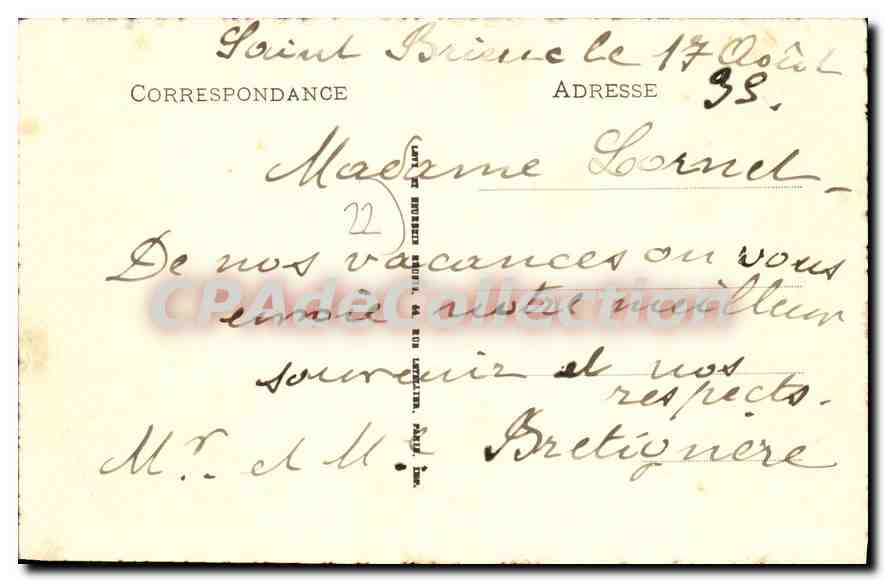 Saint Brieuc le 17 Août
39.
CORRESPONDANCE
ADRESSE
Madame Lornet
22
De nos vacances on vous
envoie notre meilleur
souvenir et nos
respects.
Mr. et Me Bretignère
LEVY ET NEURDEIN RÉUNIS, 44, RUE LETELLIER, PARIS. IMP.
CPAdeCollection